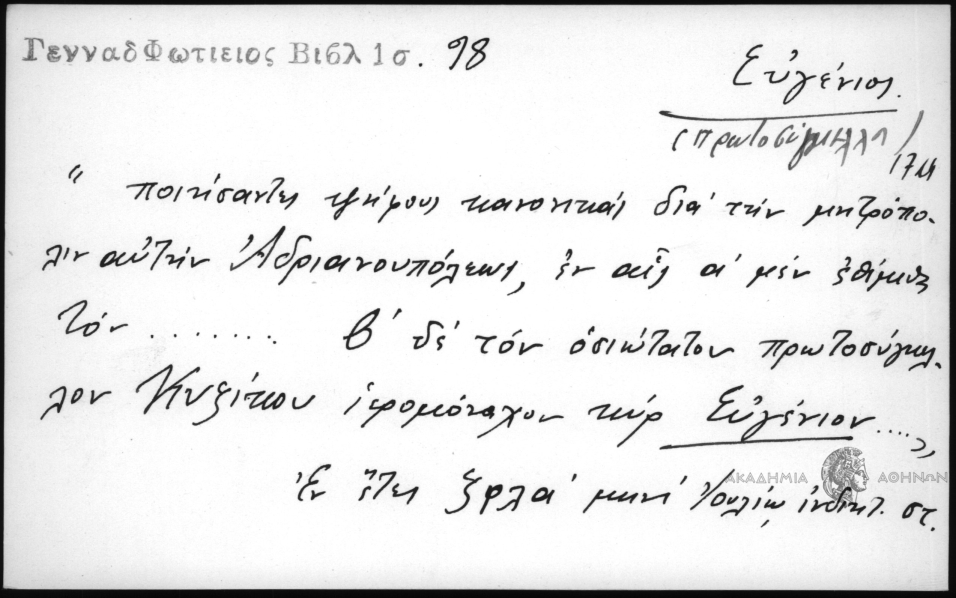 ΓενναδΦωτιειος Βιβλ 1σ. 98
Εὐγένιος.
(πρωτοσύγκελλος)
17
“ ποιήσαντες ψήφους κανονικάς διά τήν μητρόπο-
λιν αὐτήν Ἀδριανουπόλεως, ἐν αἷς α' μέν ἐθέμεθα
τόν ......... β' δέ τόν ὁσιώτατον πρωτοσύγκελ-
λον Κυζίκου ἱερομόναχον κύρ Εὐγένιον ....,,
Ἐν ἔτει ζφλα' μηνί Ἰουλίῳ ἰνδικτ. στ.
ΑΚΑΔΗΜΙΑ ΑΘΗΝΩΝ